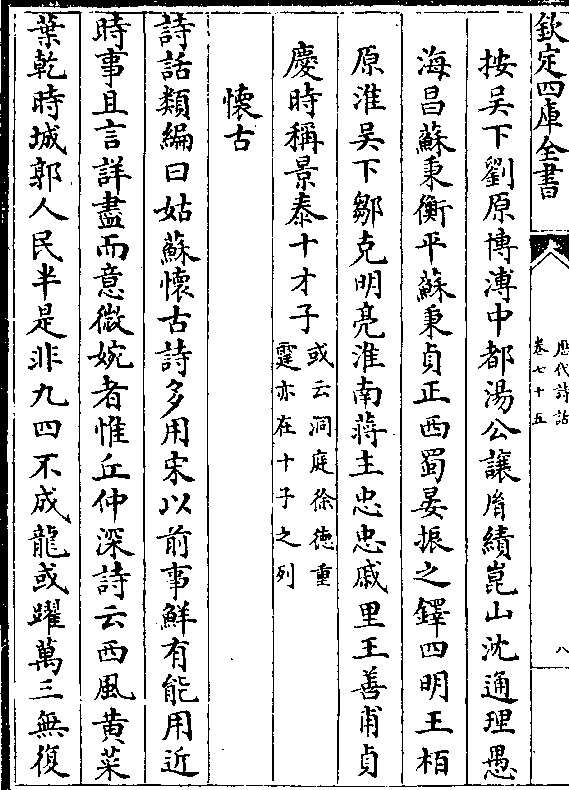 欽定四庫全書
歴代詩話
卷七十五
八
按吳下劉原博溥中都湯公讓㣧績崑山沈通理愚
海昌蘇秉衡平蘇秉貞正西蜀晏振之鐸四明王栢
原淮吳下鄒克明亮淮南蔣主忠忠戚里王善甫貞
慶時稱景泰十才子
或云洞庭徐徳重
霆亦在十子之列
懷古
詩話類編曰姑蘇懷古詩多用宋以前事鮮有能用近
時事且言詳盡而意微婉者惟丘仲深詩云西風黄菜
葉乾時城郭人民半是非九四不成龍或躍萬三無復